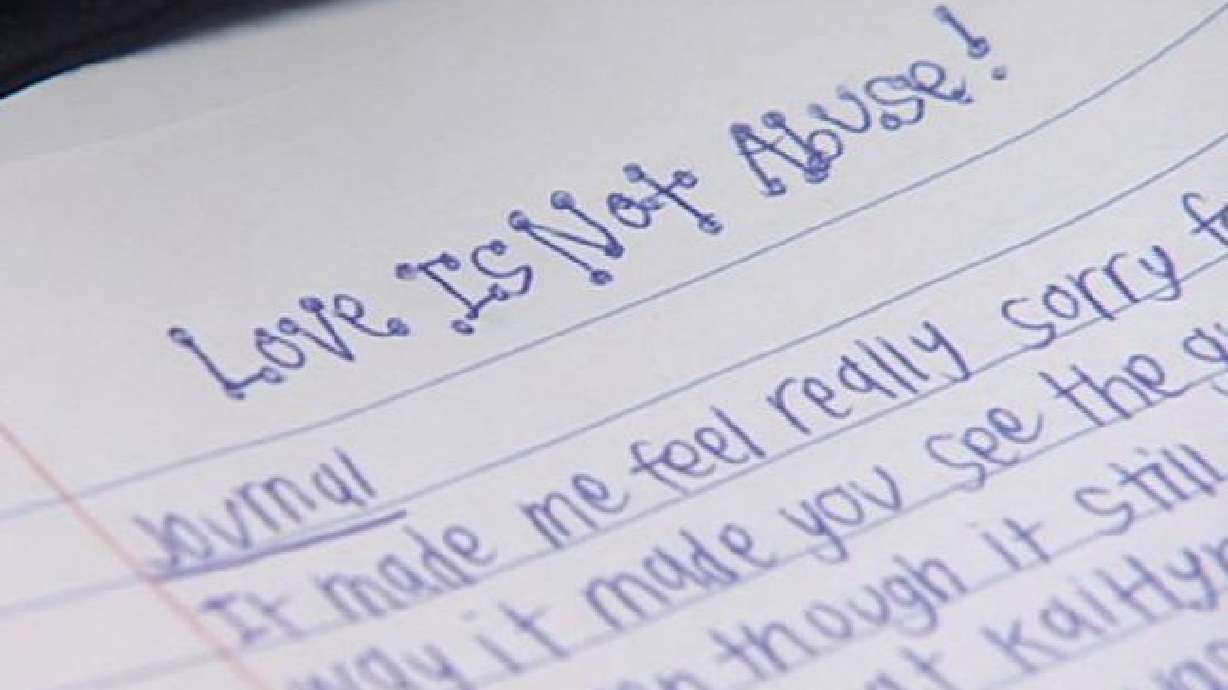 Love Is Not Abuse!
Journal
It made me feel really sorry
way it made you see the
though it still
Kaitlyn